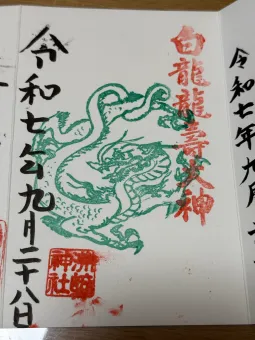 令和七年九月
白龍龍壽大神
令和七年九月二十八日
神社